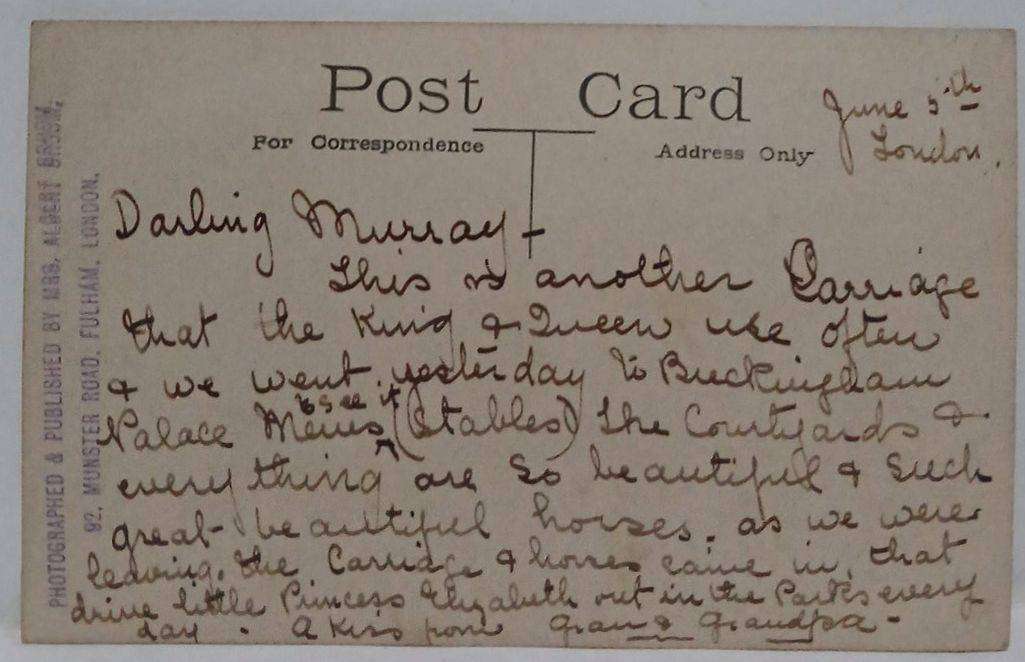 Post Card
For Correspondence
Address Only
June 5th
London.
Darling Murray -
This is another Carriage
that the King & Queen use often
& we went yesterday to Buckingham
to see it
Palace Mews (Stables) The Courtyards &
everything are so beautiful & such
great beautiful horses. as we were
leaving. the Carriage & horses came in, that
drive little Princess Elizabeth out in the Parks every
day. A Kiss from Gran & Grandpa -
PHOTOGRAPHED & PUBLISHED BY MRS. ALBERT BROOM,
92, MUNSTER ROAD, FULHAM, LONDON.